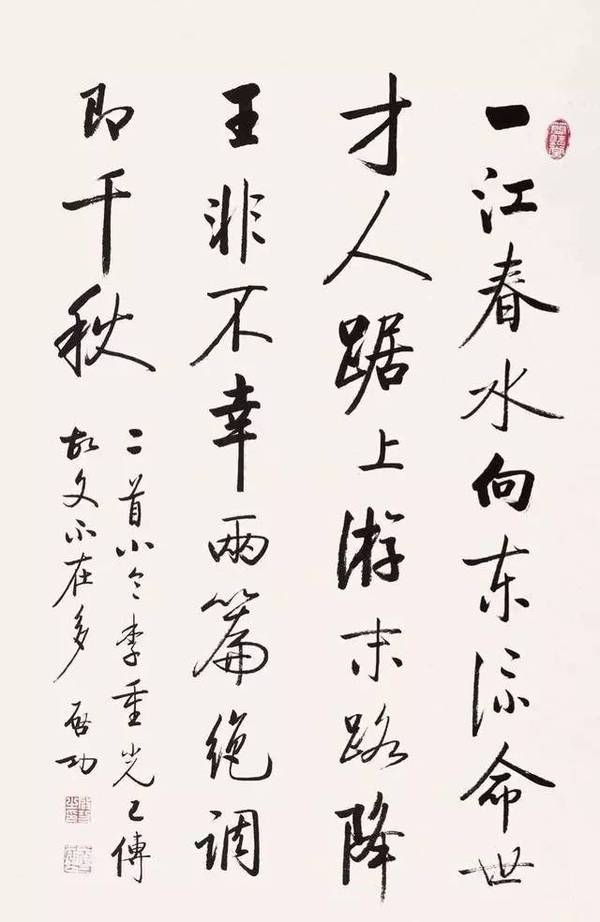 一江春水向东流命世
才人踞上游末路降
王非不幸兩篇絶調
即千秋
二首小令李重光已傳
故文不在多 启功